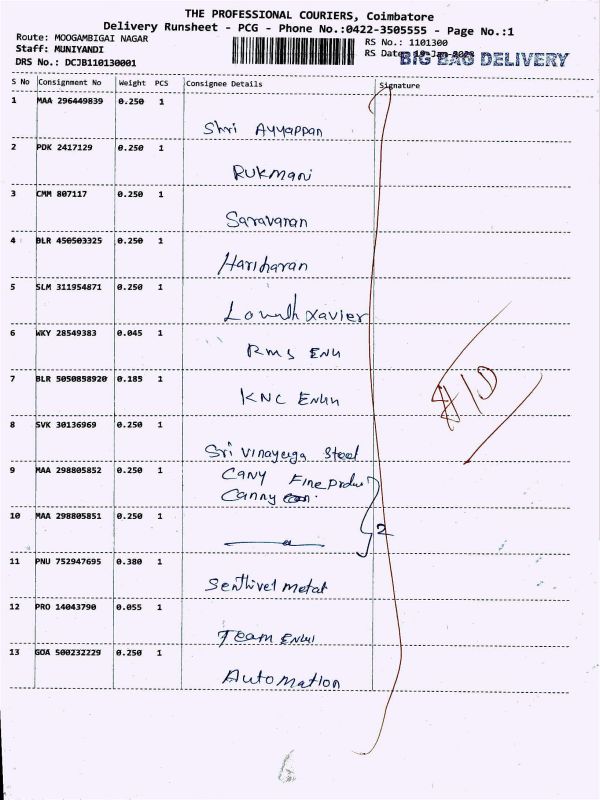 THE PROFESSIONAL COURIERS, Coimbatore
Delivery Runsheet - PCG - Phone No.:0422-3505555 - Page No.:1
Route: MOOGAMBIGAI NAGAR
Staff: MUNIYANDI
DRS No.: DCJB110130001
RS No.: 1101300
RS Date: 19-Jan-2023
BIG BAG DELIVERY
S No Consignment No Weight PCS Consignee Details Signature
1 MAA 296449839 0.250 1
Shri Ayyappan
2 PDK 2417129 0.250 1
Rukmani
3 CMM 807117 0.250 1
Saravanan
4 BLR 450503325 0.250 1
Hariharan
5 SLM 311954871 0.250 1
Xavier
6 WKY 28549383 0.045 1
RMS
7 BLR 5050858920 0.185 1
KNC
8 SVK 30136969 0.250 1
Sri Vinayaga Steel
9 MAA 298805852 0.250 1
Cany Fine
Canny
10 MAA 298805851 0.250 1
2
11 PNU 752947695 0.380 1
Senthivel Metal
12 PRO 14043790 0.055 1
Team
13 GOA 500232229 0.250 1
Automation
6